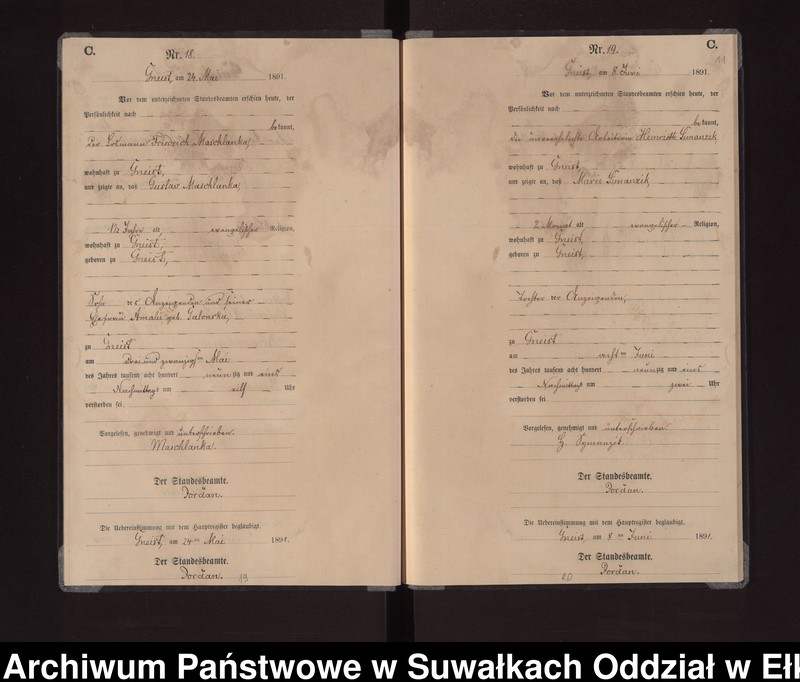 C.
Nr. 18.
Gneist, am 24. Mai 1891.
Vor dem unterzeichneten Standesbeamten erschien heute, der
Persönlichkeit nach
bekannt,
der Losmann Friedrich Maschlanka,
wohnhaft zu Gneist,
und zeigte an, daß Gustav Maschlanka,
1½ Jahr alt, evangelischer Religion,
wohnhaft zu Gneist,
geboren zu Gneist,
Sohn des Anzeigenden und seiner
Ehefrau Amalie geb.
zu Gneist
am drei und zwanzigsten Mai
des Jahres tausend acht hundert neunzig und eins
Nachmittags um elf Uhr
verstorben sei.
Vorgelesen, genehmigt und unterschrieben.
Maschlanka.
Der Standesbeamte.
Jordan.
Die Uebereinstimmung mit dem Hauptregister beglaubigt.
Gneist, am 24ten Mai 1891.
Der Standesbeamte.
Jordan.
19
C.
11
Nr. 19.
Gneist, am 8. Juni 1891.
Vor dem unterzeichneten Standesbeamten erschien heute, der
Persönlichkeit nach
bekannt,
die unverehelichte Arbeiterin
wohnhaft zu Gneist,
und zeigte an, daß Marie
2 Monat alt, evangelischer Religion,
wohnhaft zu Gneist,
geboren zu Gneist,
Tochter der Anzeigenden,
zu Gneist
am acht ten Juni
des Jahres tausend acht hundert neunzig und eins
Nachmittags um zwei Uhr
verstorben sei.
Vorgelesen, genehmigt und unterschrieben.
H. Symanzik.
Der Standesbeamte.
Jordan.
Die Uebereinstimmung mit dem Hauptregister beglaubigt.
Gneist, am 8ten Juni 1891.
Der Standesbeamte.
Jordan.
20
Archiwum Państwowe w Suwałkach Oddział w Ełk